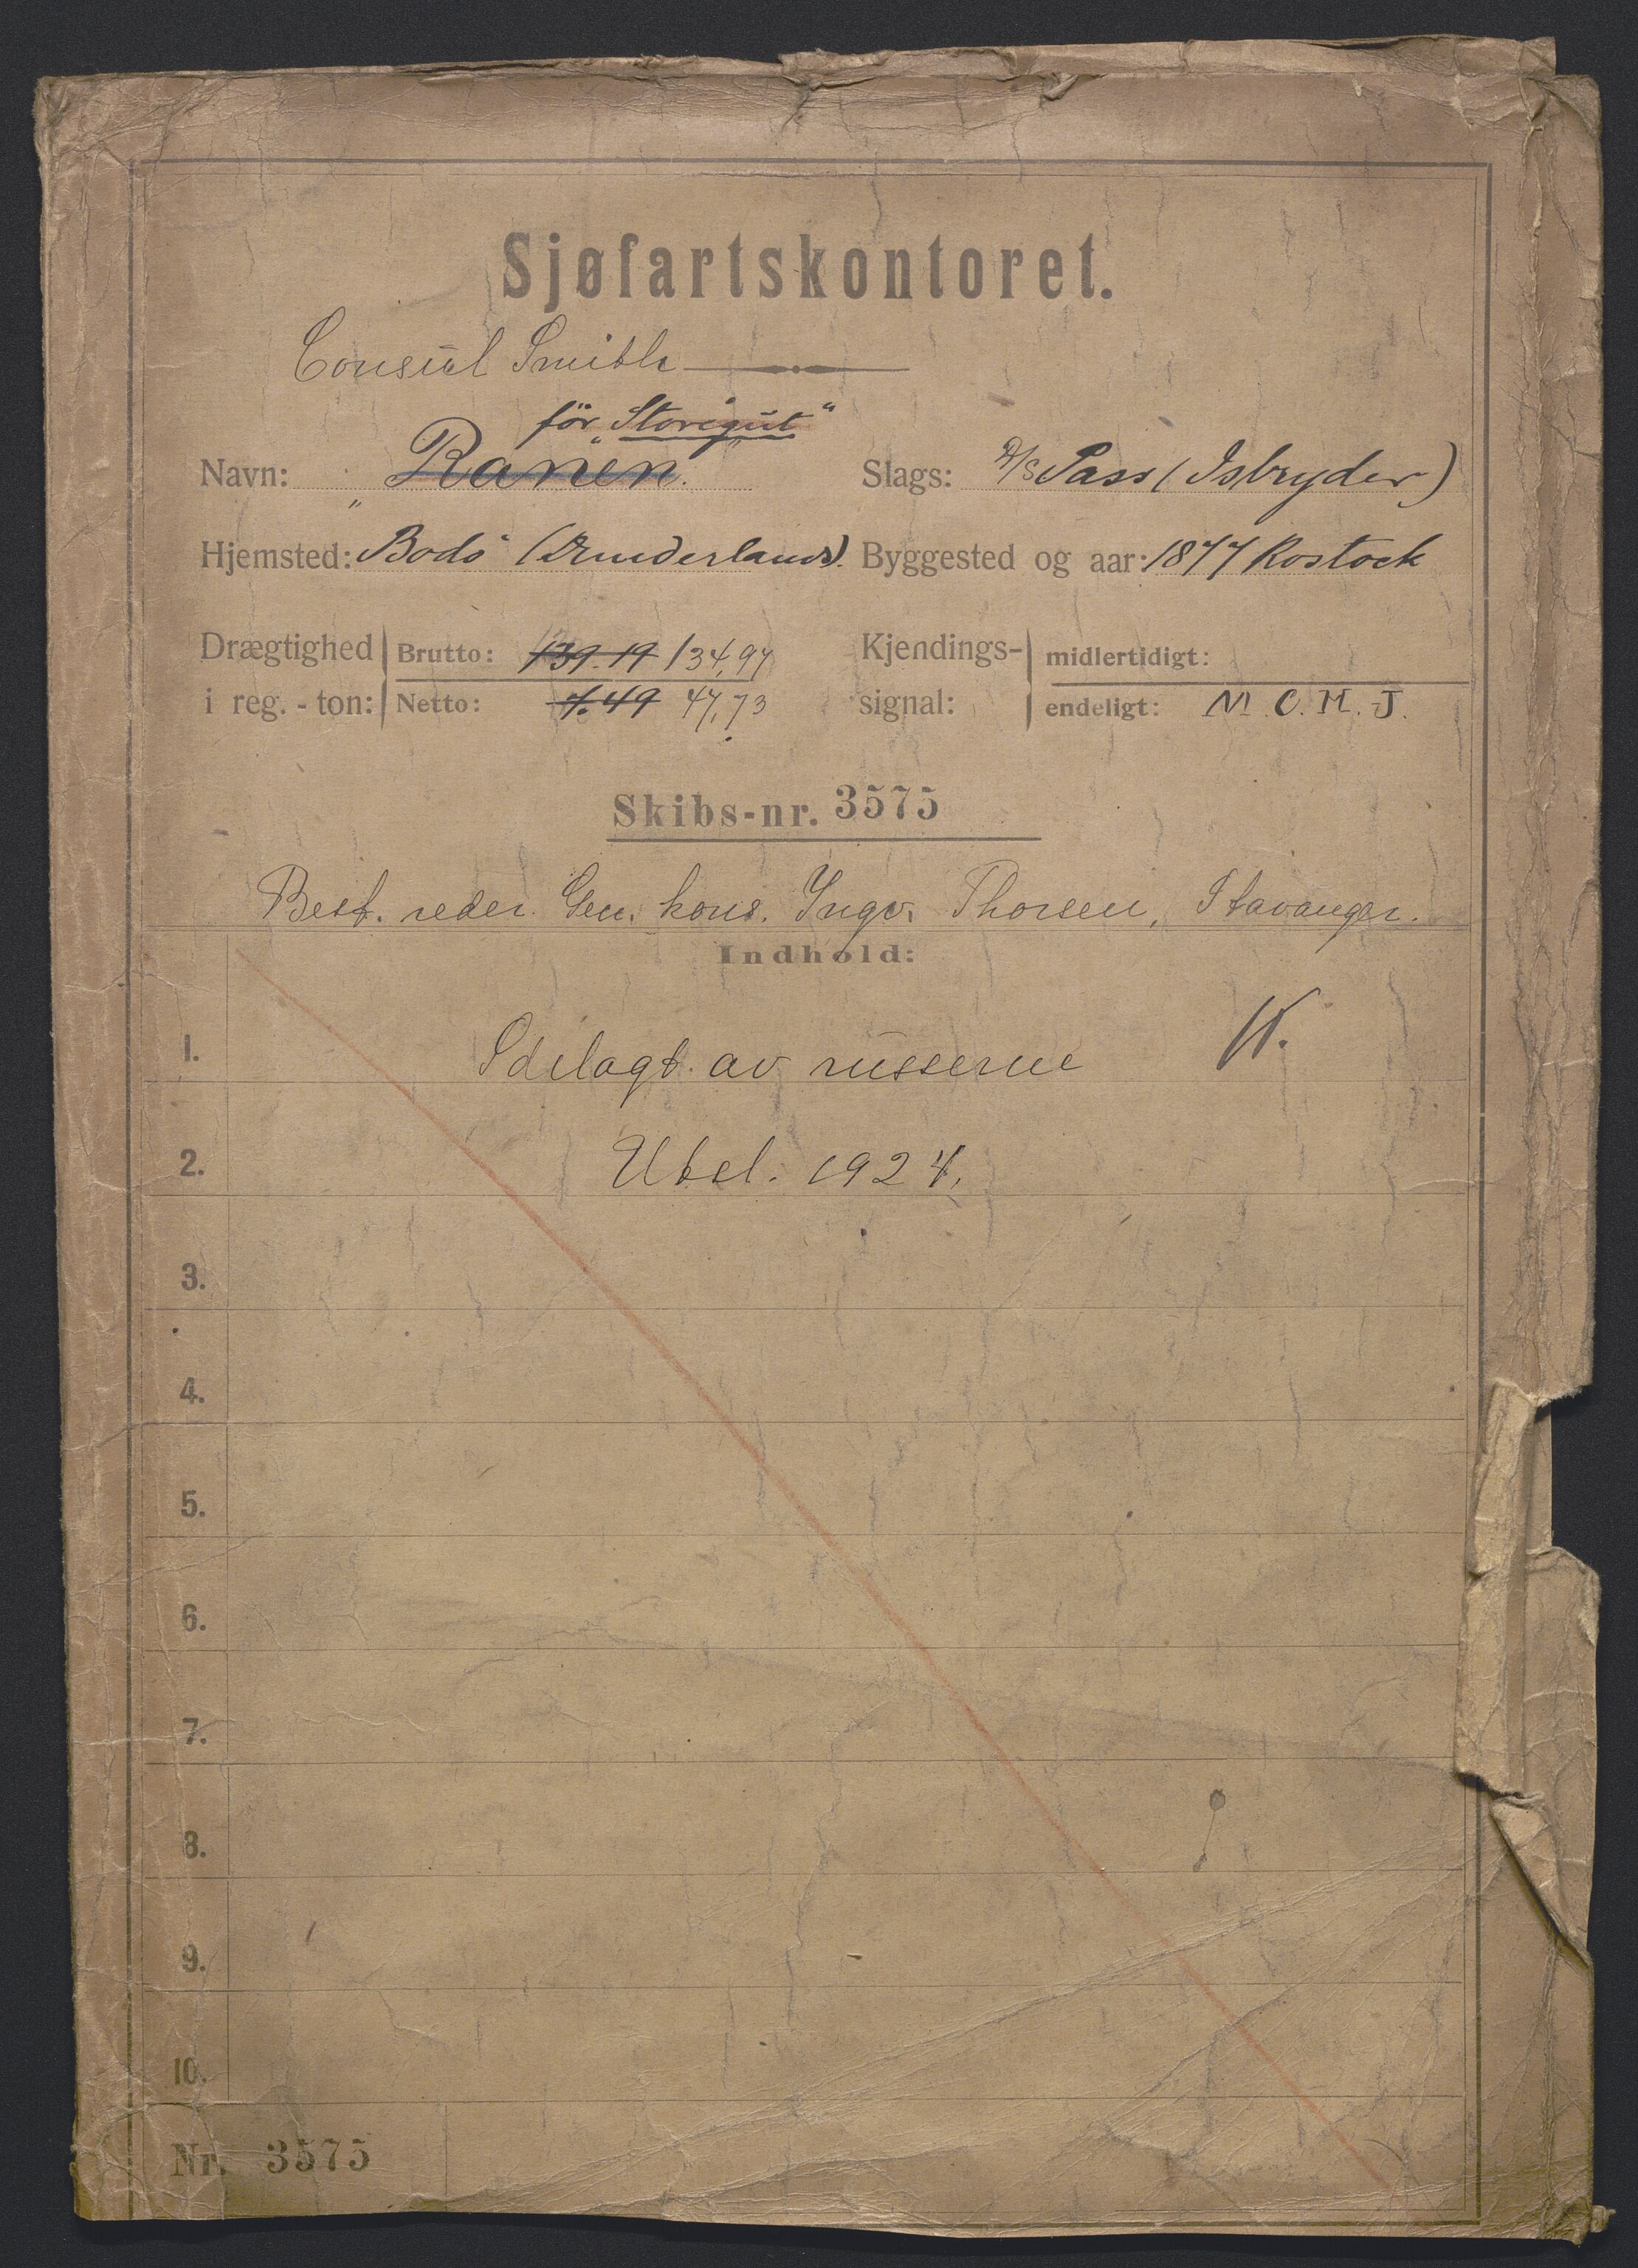 Sjøfartskontoret.
Consul Smith
för „Storegut“
Navn: „Ranen“. Slags: D/S Pass (Isbryder)
Hjemsted: Bodö (Dunderland). Byggested og aar: 1877 Rostock
Drægtighed Brutto: 139.19 134,94 Kjendings- midlertidigt:
i reg.-ton: Netto: 7.49 47,73 signal: endeligt: M.C.H.J.
Skibs-nr. 3575
Best. reder. Gen. kons. Ingv. Thorsen, Stavanger.
Indhold:
1. Ödelagt av russerne
2. Utel. 1924.
3.
4.
5.
6.
7.
8.
9.
10.
Nr. 3575